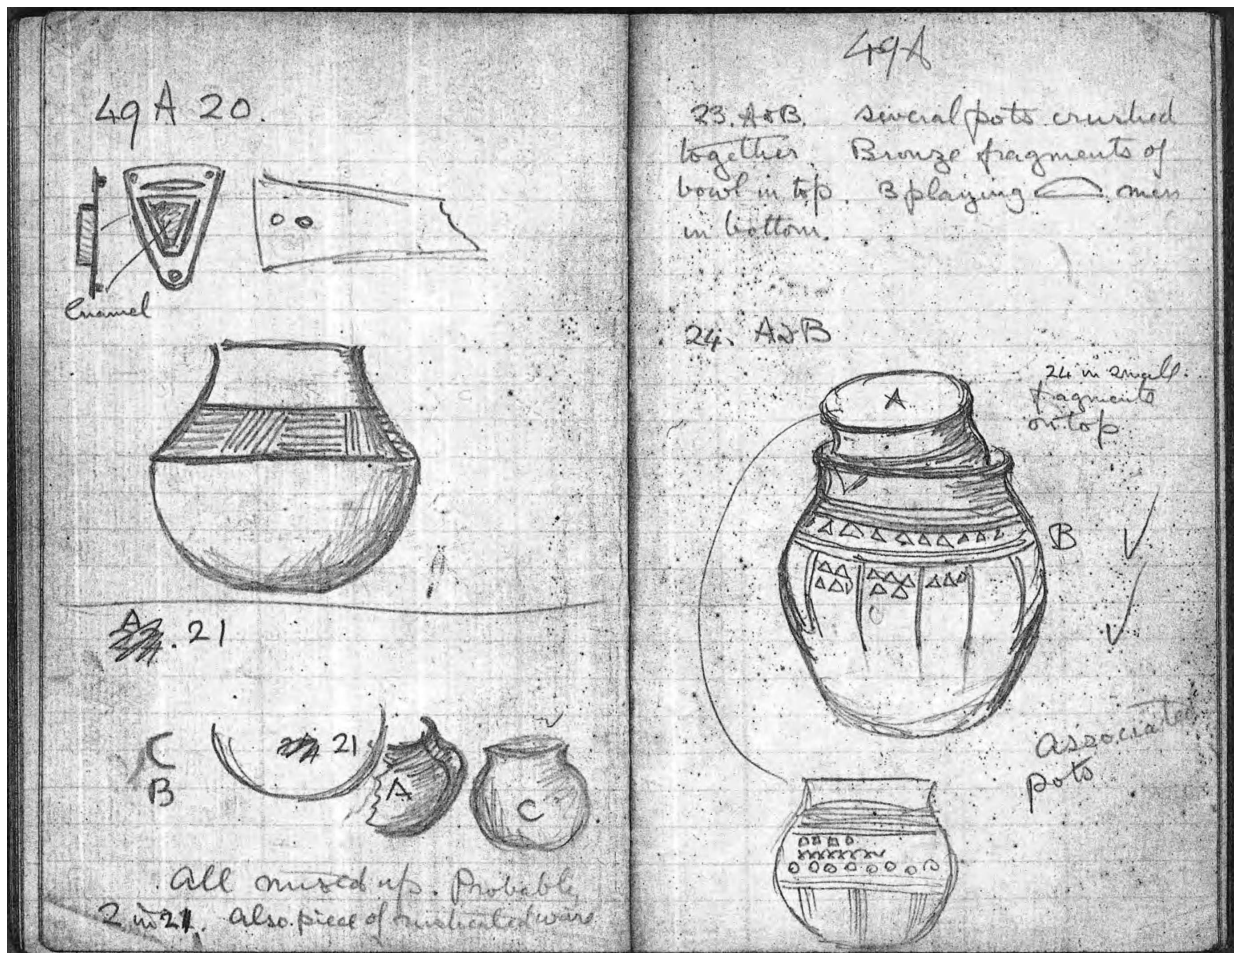 49 A 20.
Enamel
A
. 21
C
B
21
A
C
All mixed up. Probable
2 in 21. Also piece of rusticated ware
49A
23. A & B. Several pots crushed
together. Bronze fragments of
bowl in top. B playing mess
in bottom.
24. A & B
24 in small
fragments
on top
A
B
Associated
pots